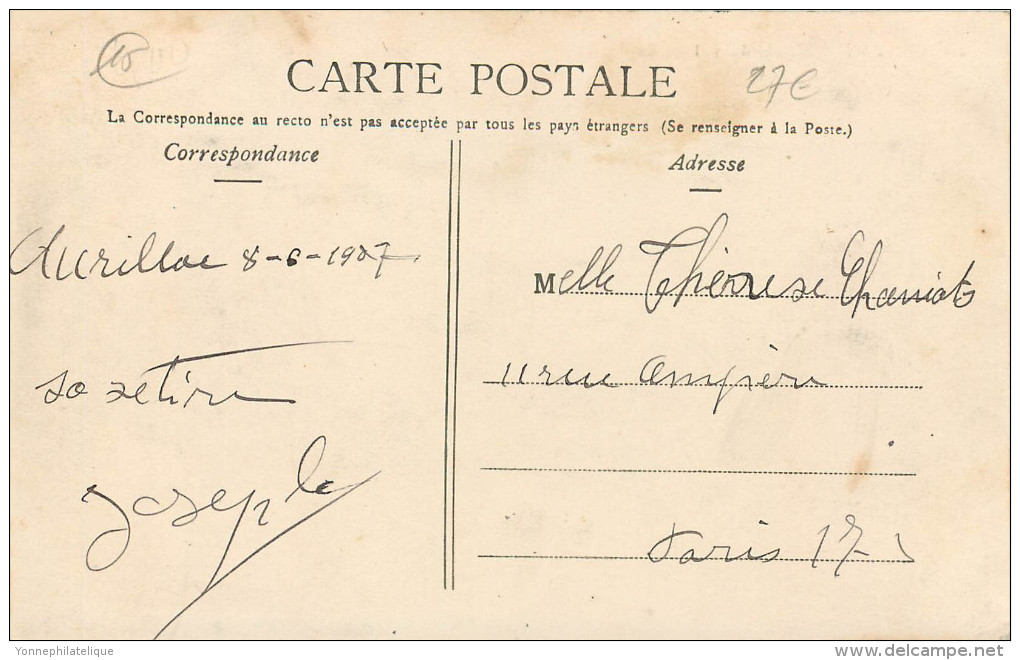 15
27€
CARTE POSTALE
La Correspondance au recto n'est pas acceptée par tous les pays étrangers (Se renseigner à la Poste.)
Correspondance
Adresse
Aurillac 8-6-1907.
Melle Thérèse
11 rue Ampère
Joseph
Paris 17
Yonnephilatelique
delcampe.net